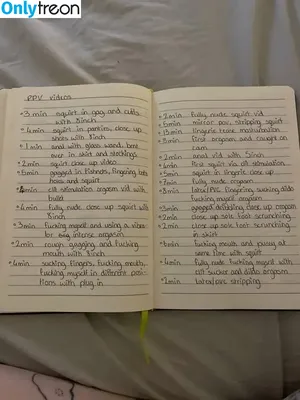 Onlytreon
PPV Videos
• 3 min squirt in gag and cuffs
with 8inch
• 4min squirt in panties, close up
shots with 8inch
• 1min anal with glass wand, bent
over in skirt and stockings
• 2min squirt close up video
• 5min gagged in fishnets, fingering,
hose and squirt
• 4min clit stimulation orgasm vid with
bullet
• 4min fully nude close up squirt with
8inch
• 3min fucking myself and using a vibe
for big intense orgasm
• 2min rough gagging and fucking
mouth with 8inch
• 4min sucking fingers, fucking mouth,
fucking myself in different posi-
tions with plug in
• 2min fully nude squirt vid
• 5min mirror pov, stripping squirt
• 13min lingerie tease masturbation
• 8min first orgasm and caught on
cam
• 2min anal vid with 5inch
• 4min first squirt via clit stimulation
• 5min squirt in lingerie close up
• 7min fully nude orgasm
• 8min fingering, sucking dildo
fucking myself orgasm
• 3min gagged dribbling close up orgasm
• 2min close up sole foot scrunching
• 2min close up sole foot scrunching
in skirt
• 6min fucking mouth and pussy at
same time with squirt
• 4min fully nude fucking myself with
clit sucker and dildo orgasm
• 2min stripping